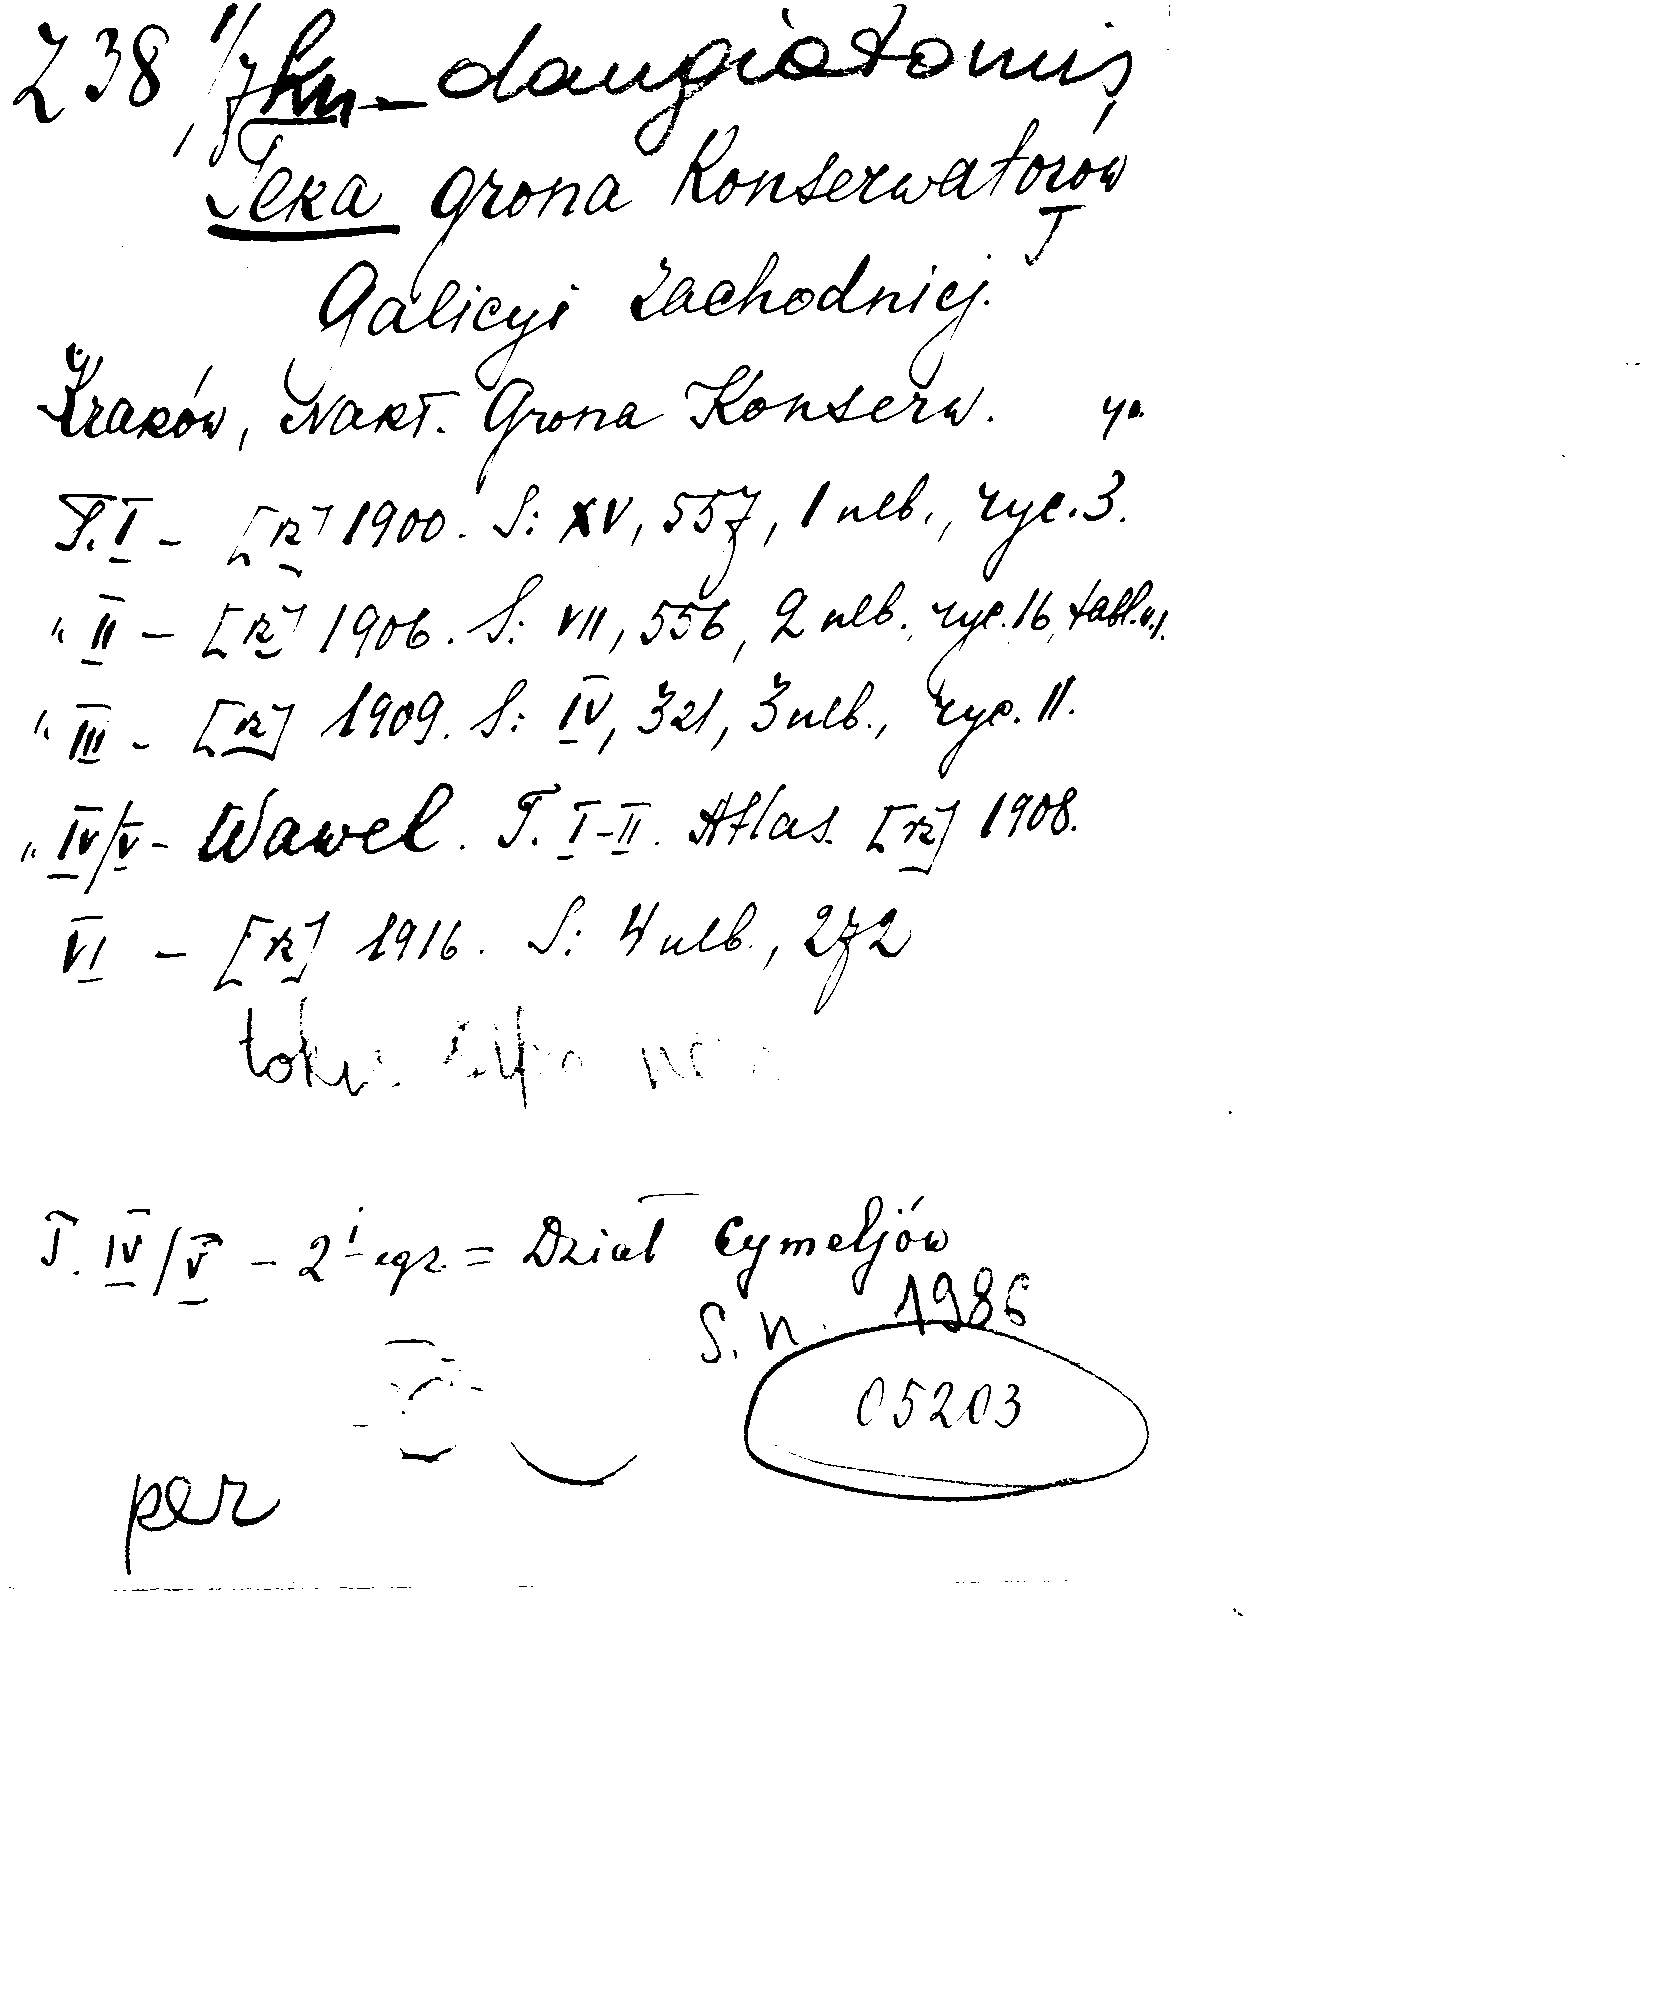 Z38, 1/7 kn - daugiatomis
Teka Grona Konserwatorów
Galicyi Zachodniej.
Kraków, Nakł. Grona Konserw. 4o.
T. I - [k] 1900. S: XV, 557, 1 nlb., ryc. 3.
" II - [k] 1906. S: VII, 556, 2 nlb., ryc. 16, tabl. 1.
" III - [k] 1909. S: IV, 321, 3 nlb., ryc. 11.
" IV/V - Wawel. T. I-II. Atlas. [k] 1908.
VI - [k] 1916. S: 4 nlb., 272
T. IV/V - 2i egz. = Dział Cymeljów
S.n. 1986
05203
per